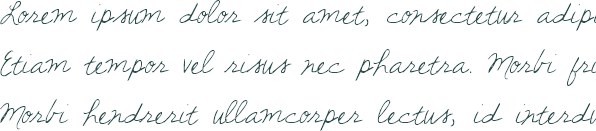 Lorem ipsum dolor sit amet, consectetur adipi
Etiam tempor vel risus nec pharetra. Morbi fri
Morbi hendrerit ullamcorper lectus, id interdu